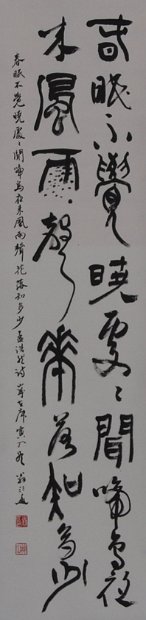 春眠不覺曉處〻聞啼鳥夜
來風雨聲華落知多少
春眠不覺曉處〻聞啼鳥夜來風雨聲花落知多少孟浩然詩歲在庚寅